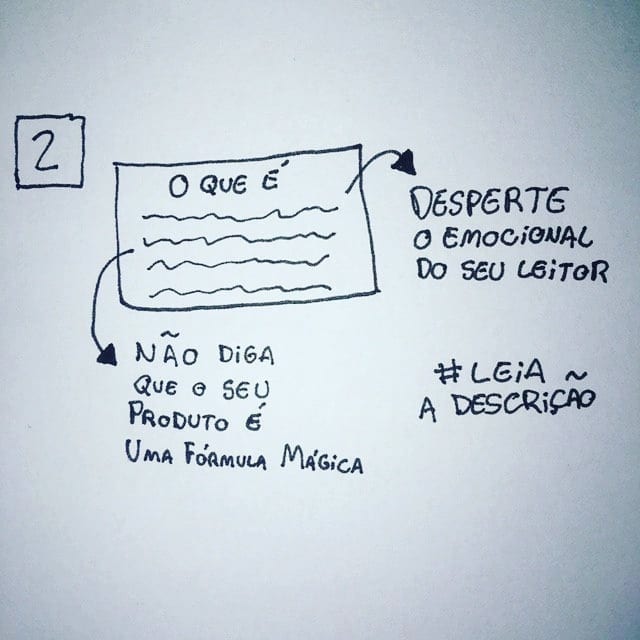 2
O QUE É
DESPERTE
O EMOCIONAL
DO SEU LEITOR
NÃO DIGA
QUE O SEU
PRODUTO É
UMA FÓRMULA MÁGICA
# LEIA
A DESCRIÇÃO